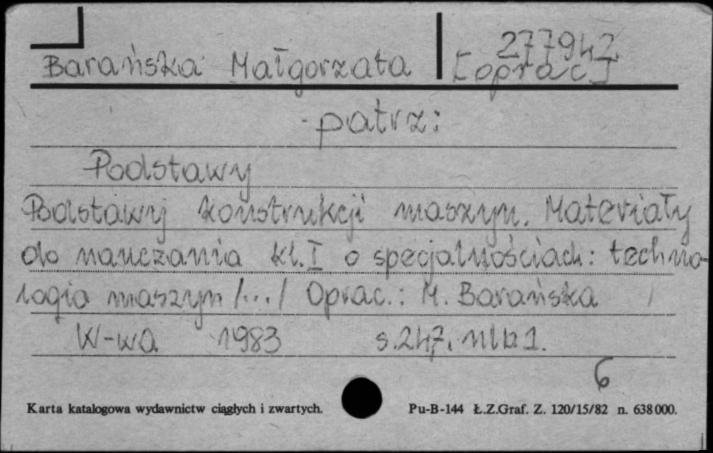 277942
Barańska Małgorzata [oprac]
patrz:
Podstawy
Podstawy konstrukcji maszyn. Materiały
do nauczania kl. I o specjalnościach: techno-
logia maszyn /.../ Oprac.: M. Barańska
W-wa 1983 s. 247, nlb 1.
6
Karta katalogowa wydawnictw ciągłych i zwartych. Pu-B-144 Ł.Z.Graf. Z. 120/15/82 n. 638 000.